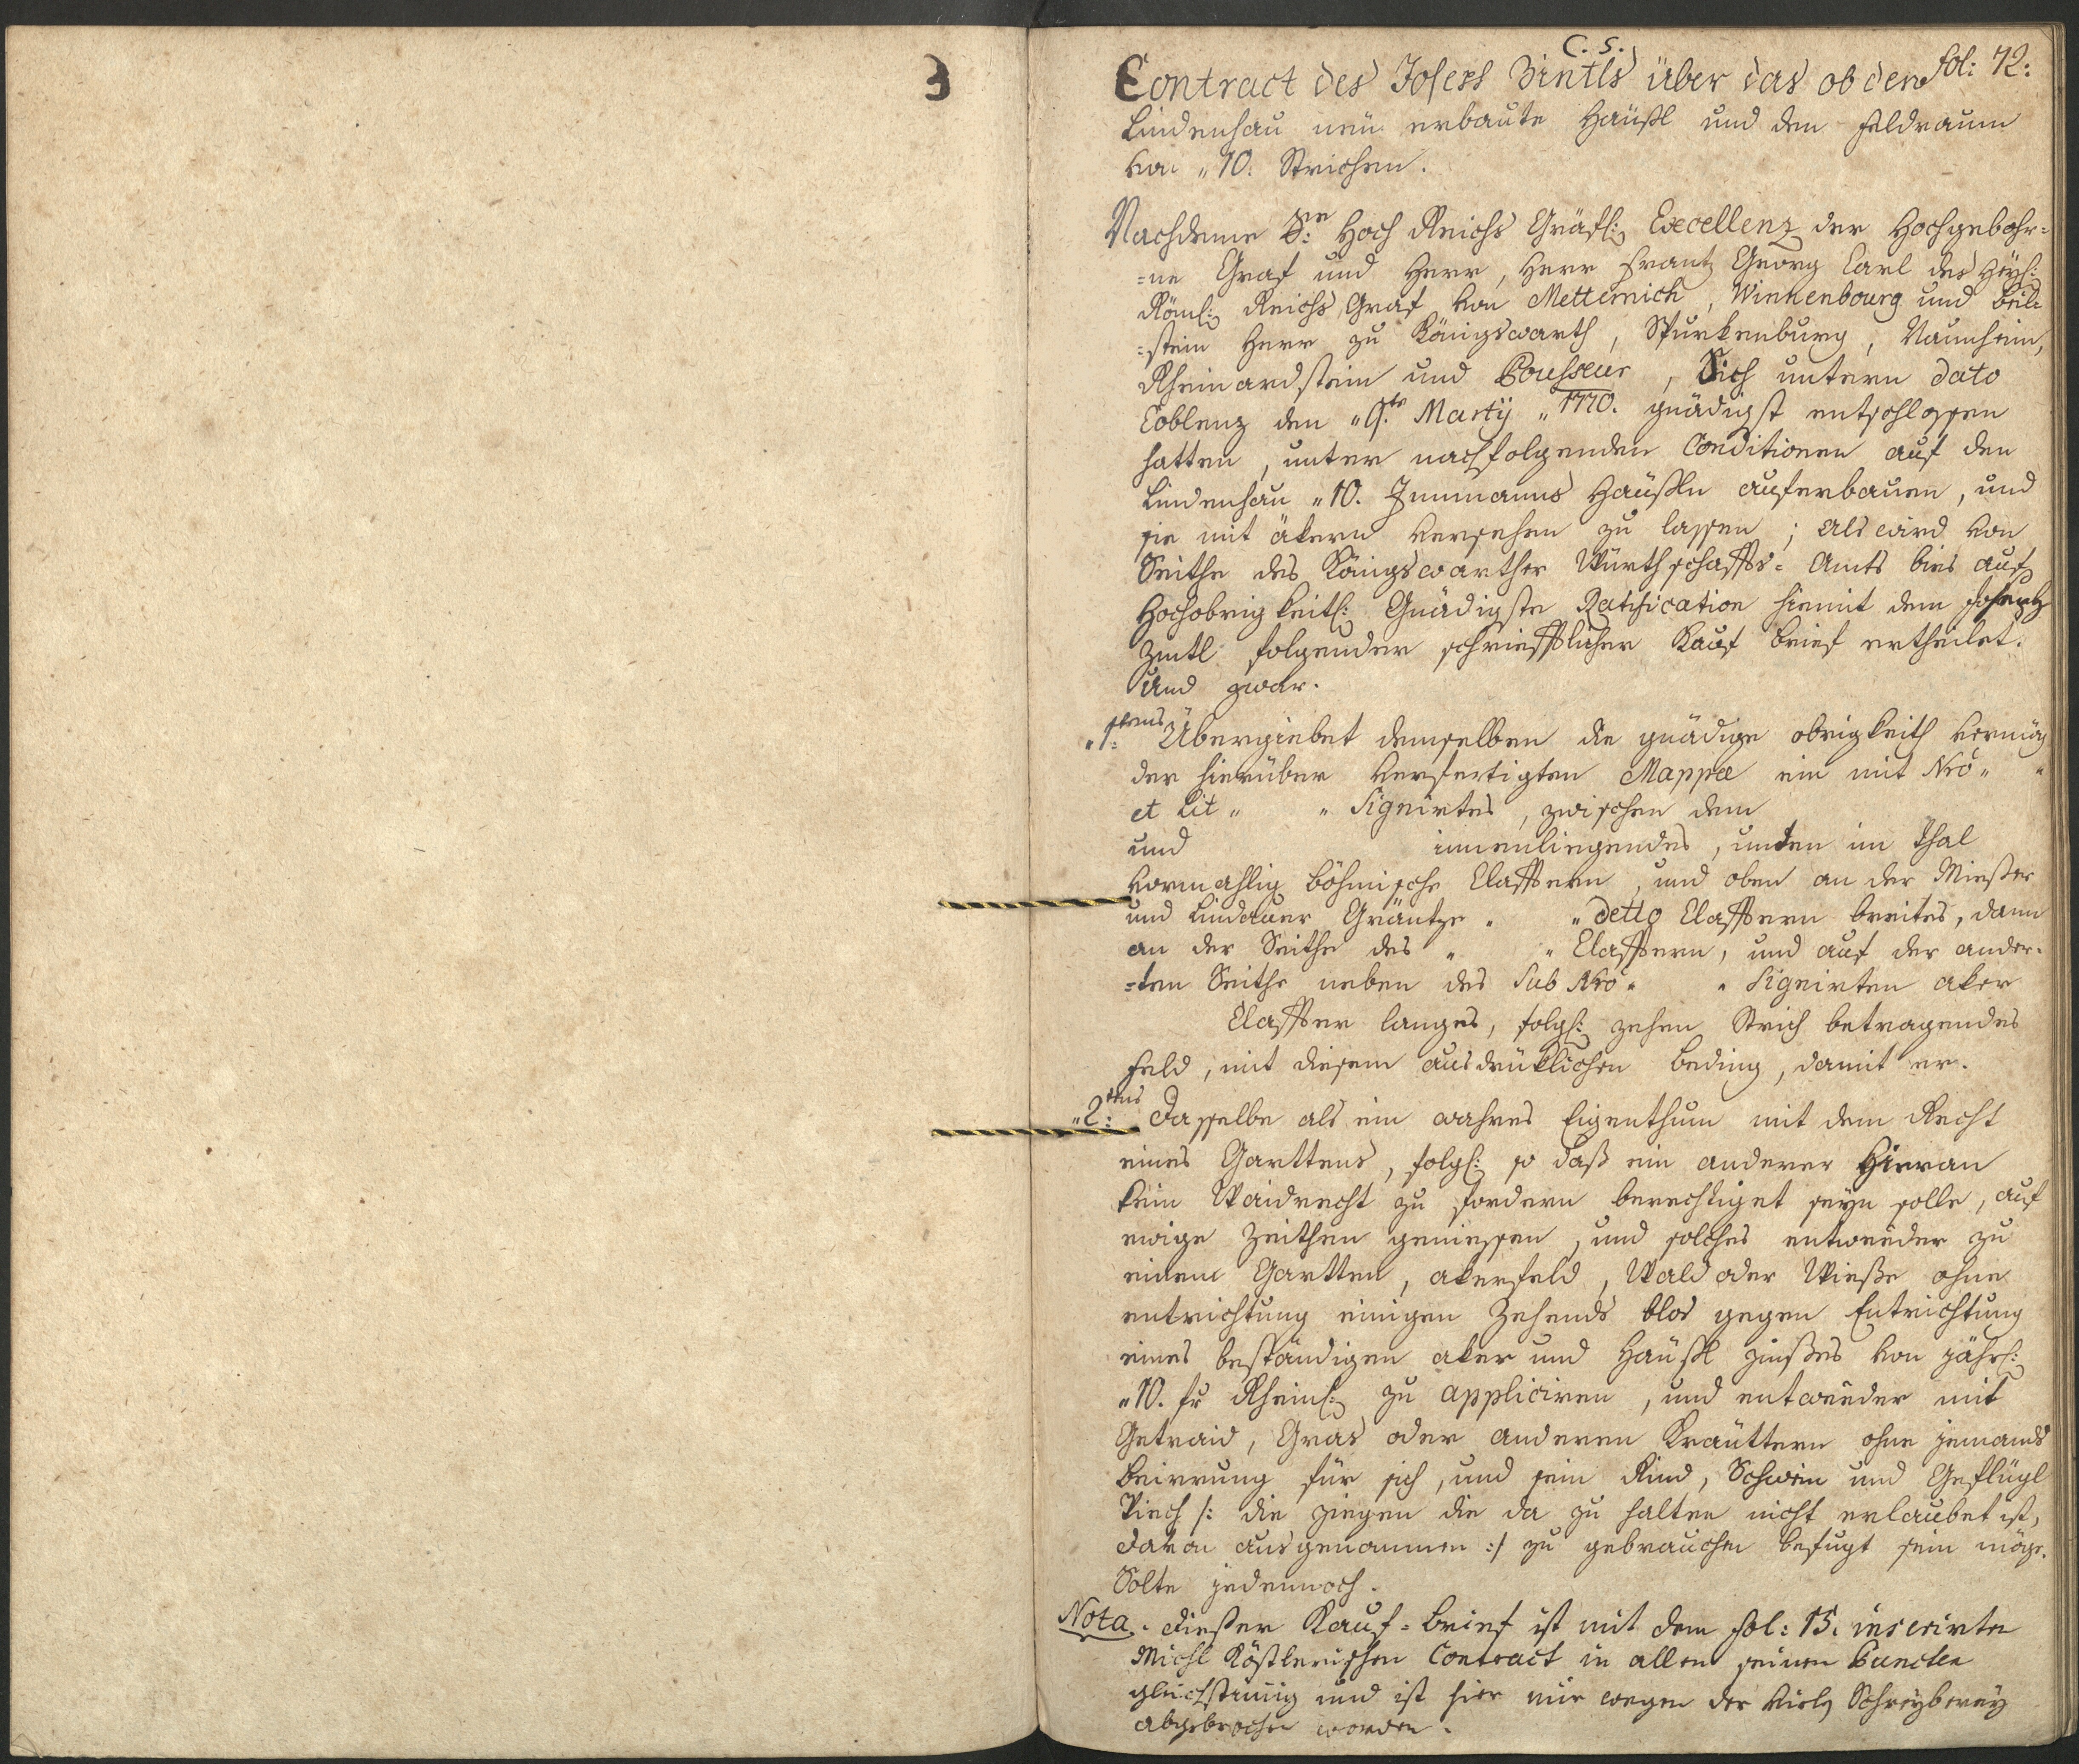 3
C. S.
fol: 72:
Contract des Joseph Zintls über das ob den
Lindenhau neu erbaute Häußl und den Feldraum
von „10. Strichen.
Nachdeme Se: Hoch Reichs Gräfl: Excellenz der Hochgebohr=
=ne Graf und Herr, Herr Frantz Georg Carl des Heyl:
Röml: Reichs Graf von Metternich, Winnenbourg und Beil=
=stein Herr zu Königswarth, Spurkenburg, Naunheim,
Rheinardstein und Pousseur, Sich untern dato
Coblenz den „9te Martÿ „1770. gnädigst entschlossen
hatten, unter nachfolgenden Conditionen auf den
Lindenhau „10. Innmanns Häußln auferbauen, und
sie mit äkern versehen zu lassen; als wird von
Seithe des Königswarther Würthschaffts= Amts bies auf
Hochobrigkeitl: Gnädigste Ratification hiemit dem Josephz
Zintl folgender schriefftlicher Kauf brief ertheilet.
Und zwar.
„1stens Übergiebet demselben die gnädige obrigkeith vermög
der hierüber verfertigten Mappæ ein mit Nro „ „
et Lit „ „ Signirtes, zwischen dem
und innenliegendes, unten im Thal
vormahlig böhmische Claffern, und oben an der Mießer
und Lindauer Gräntze „ „ detto Claffern breites, dann
an der Seithe des „ „ Claffern, und auf der ander=
=ten Seithe neben des Sub Nro „ „ Signirten aker
Claffter langes, folgl: zehen Strich betragendes
Feld, mit diesem ausdrüklichen beding, damit er.
„2tens Dasselbe als ein wahres Eigenthum mit dem Recht
eines Garttens, folgl: so daß ein anderer Hieran
kein Waidrecht zu fordern berechtiget seyn solle, auf
ewige Zeithen geniessen, und solches entweeder zu
einem Gartten, akerfeld, Wald oder Wieße ohne
entrichtung einigen Zehends blos gegen Entrichtung
eines beständigen aker und Häußl zinßes von jährl:
„10. fr Rheinl: zu appliciren, und entweeder mit
Getraid, Gras oder anderen Kräuttern ohne jemands
beirrung für sich, und sein Rind, Schwein und Geflügl
Viech /: die ziegen die da zu halten nicht erlaubet ist,
davon ausgenommen :/ zu gebrauchen befugt sein möge.
Solte jedennoch.
Nota. dießer Kauf=brief ist mit dem fol: 15. inserirten
Michl Köstlerischen Contract in allen seinen Puncten
gleichstimig und ist hier nur wegen der vieln Schreyberey
abgebrochen worden.